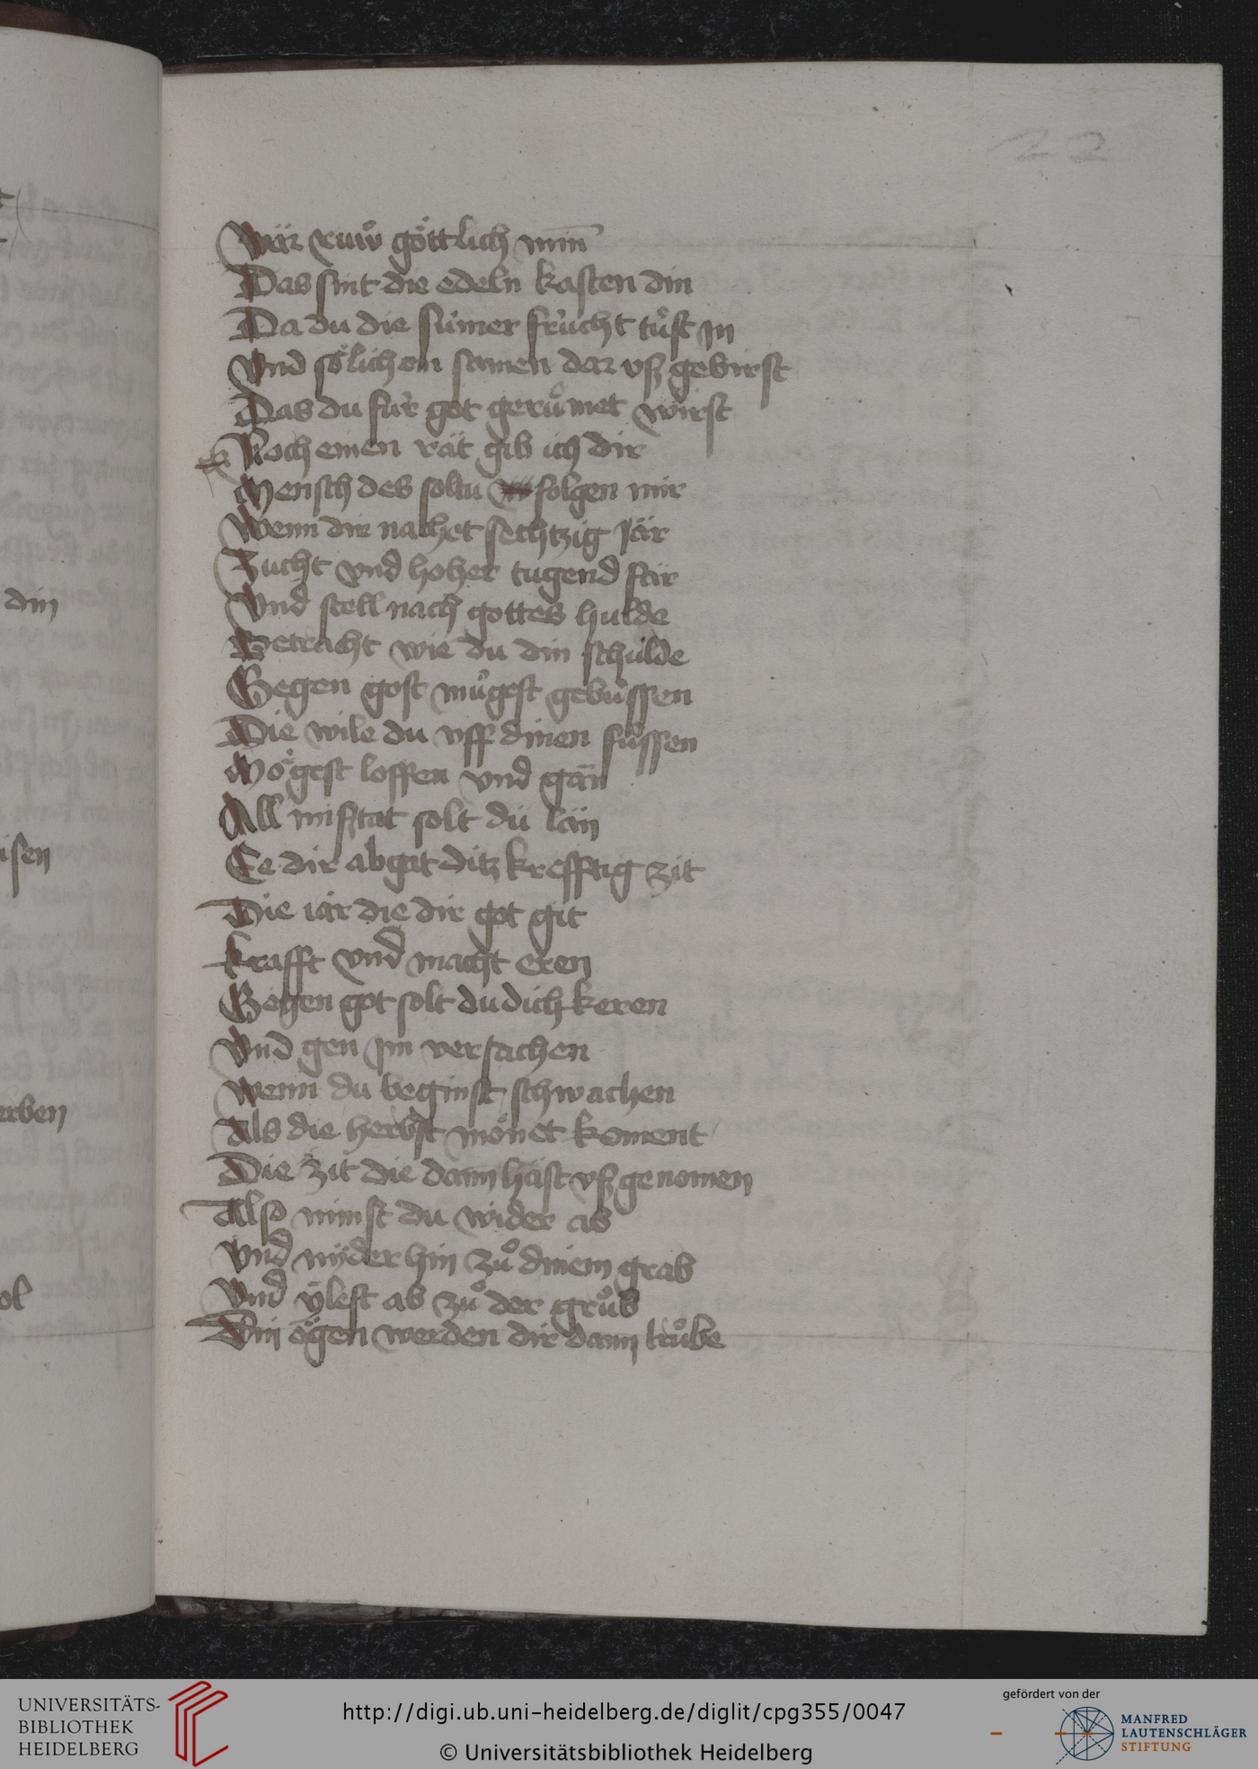 22
Wär ruͦw göttlich min̄
Das sint die edeln kasten din
Da du die sumer frucht tuͦst jn
Vnd sölichen samen dar vß gebirst
Das du für got geruͤmet wirst
Noch einen rät gib ich dir
Mensch des soltu folgen mir
Wenn dir nachet sechtzig Jär
Zucht vnd hoher tugend fär
Vnd stell nach gottes hulde
Betracht wie du din schulde
Gegen gost mügest gebüssen
Die wile du vff dinen füssen
Mögest loffen vnd gän
All mistat solt du län
Ee dir abgat ditz krefftig zit
Die iär die dir got git
krafft vnd macht eren
Gegen got solt du dich keren
Vnd gen jm versachen
Wenn du beginst schwachen
Als die herbst monet koment
Die zit die dann häst vß genomen
Also nimst du wider ab
Vnd nyder hin zuͦ dinem grab
Vnd ÿlest ab zuͦ der gruͦb
Din ögen werden dir dann truͤbe
din
isen
erben
ol
UNIVERSITÄTS-
BIBLIOTHEK
HEIDELBERG
http://digi.ub.uni-heidelberg.de/diglit/cpg355/0047
© Universitätsbibliothek Heidelberg
gefördert von der
MANFRED
LAUTENSCHLÄGER
STIFTUNG